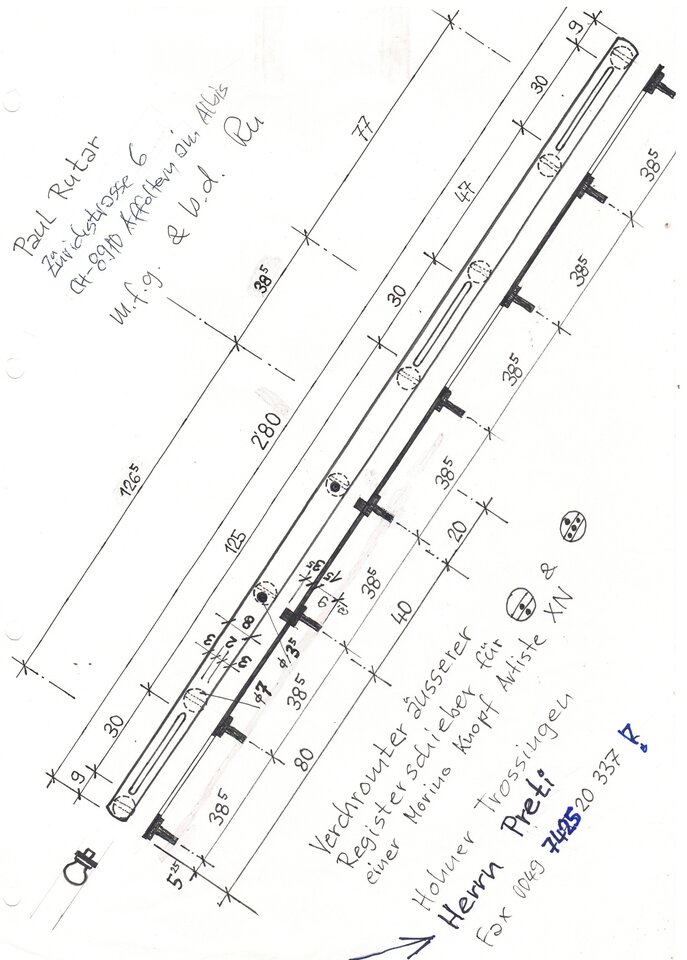 Paul Rutar
Zürichstrasse 6
CH-8910 Affoltern am Albis
m.f.g. & b.d. Ru
9
30
77
47
38⁵
30
280
126⁵
125
30
9
38⁵
38⁵
38⁵
38⁵
38⁵
38⁵
38⁵
20
40
80
5²⁵
3
2
3
8
ϕ 3⁵
ϕ7
Verchromter äusserer
Registerschieber für
einer Morino Knopf Artiste XN
&
Hohner Trossingen
Herrn Preti
Fax 0049 7425 20 337